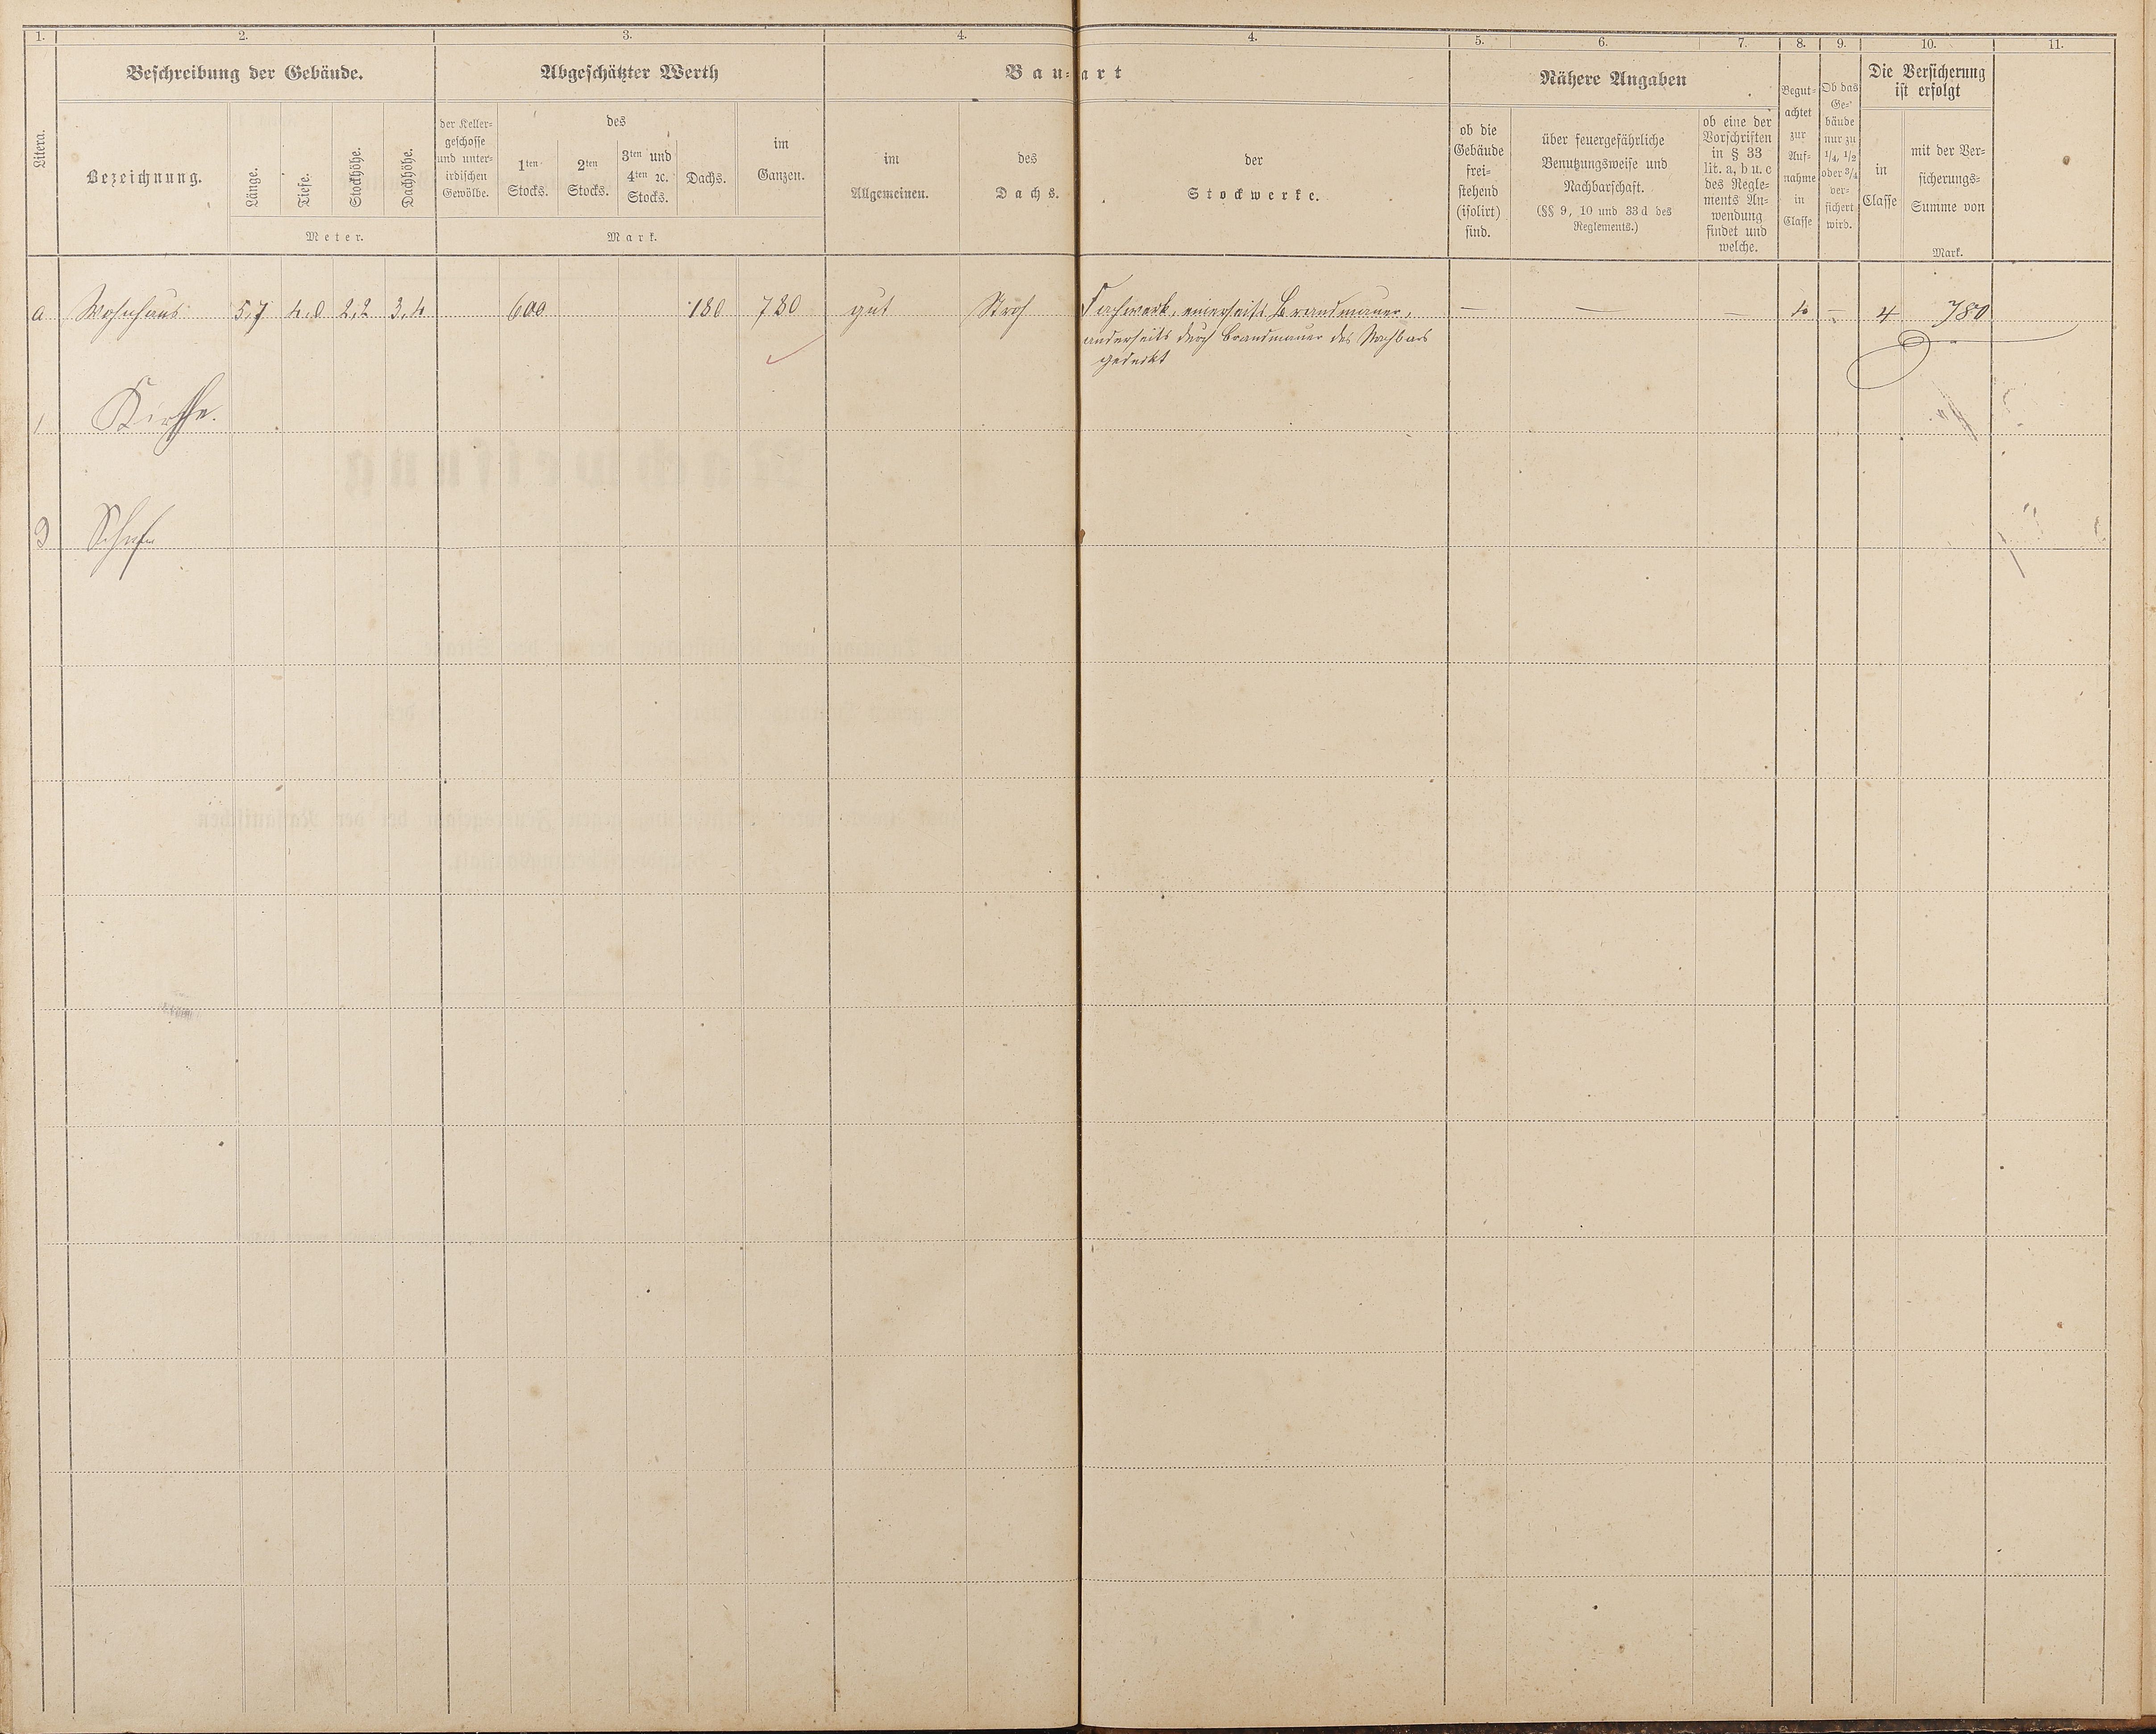 1. 2. 3. 4. 4. 5. 6. 7. 8. 9. 10. 11.
Litera.
Beschreibung der Gebäude.
Bezeichnung.
Länge.
Tiefe.
Stockhöhe.
Dachhöhe.
Meter.
Abgeschätzter Werth
der Keller-
geschosse
und unter-
irdischen
Gewölbe.
des
1ten
Stocks.
2ten
Stocks.
3ten und
4ten ꝛc.
Stocks.
Dachs.
im
Ganzen.
Mark.
Bau-art
im
Allgemeinen.
des
Dachs.
der
Stockwerke.
Nähere Angaben
ob die
Gebäude
frei-
stehend
(isolirt)
sind.
über feuergefährliche
Benutzungsweise und
Nachbarschaft.
(§§ 9, 10 und 33 d des
Reglements.)
ob eine der
Vorschriften
in § 33
lit. a, b u. c
des Regle-
ments An-
wendung
findet und
welche.
Begut-
achtet
zur
Auf-
nahme
in
Classe
Ob das
Ge-
bäude
nur zu
1/4, 1/2
oder 3/4
ver-
sichert
wird.
Die Versicherung
ist erfolgt
in
Classe
mit der Ver-
sicherungs-
Summe von
Mark.
a. Wohnhaus 5,7 4,8 2,2 3,4 600 180 780 gut Stroh Fachwerk, einerseits Brandmauer, — — — 4 — 4 780
anderseits durch Brandmauer des Nachbars
gedeckt